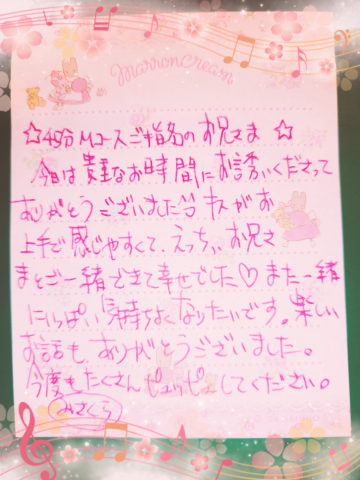 Marroncream
☆40分Mコースご指名のお兄さま☆
今日は貴重なお時間にお誘いくださって
ありがとうございました!! キスがお
上手で感じやすくて、えっちぃお兄さ
まとご一緒できて幸せでした♡また一緒
にいっぱい気持ちよくなりたいです。楽しい
お話もありがとうございました。
今度もたくさんピュッピュしてください。
みさくら